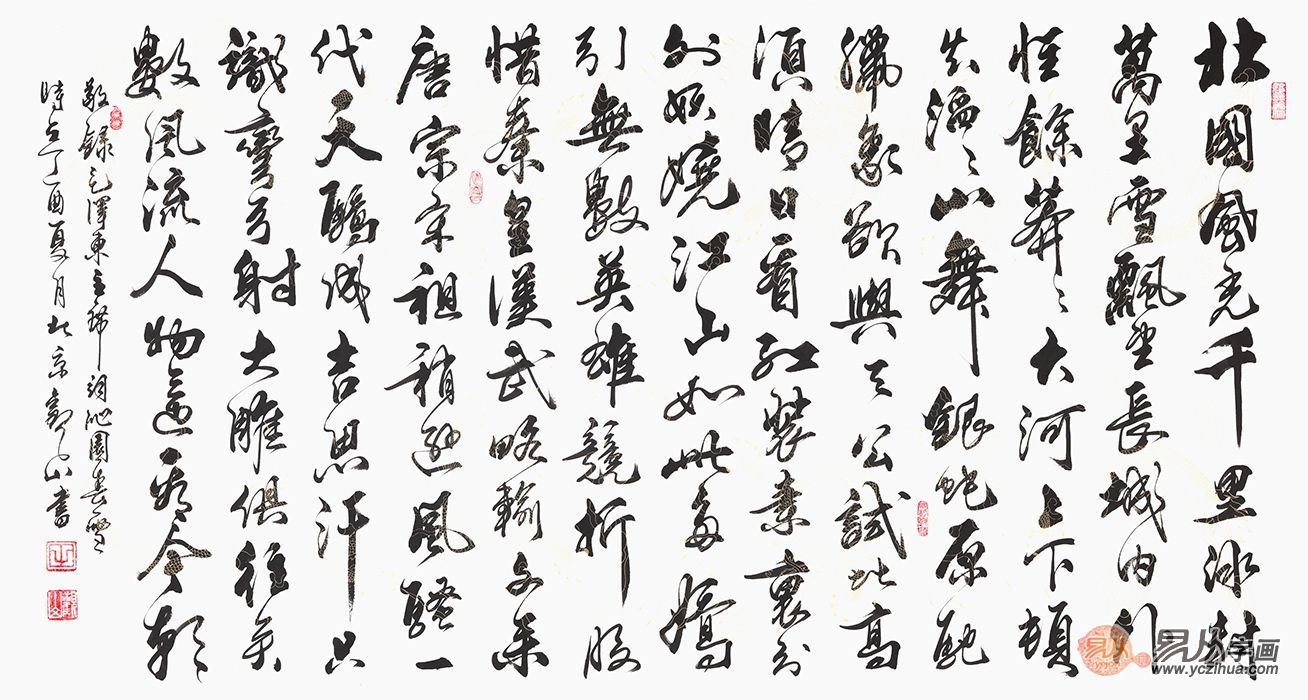 北國風光千里冰封
萬里雪飄望長城内外
惟餘莽々大河上下頓
失滔々山舞銀蛇原馳
臘象欲與天公試比高
須晴日看紅裝素裹分
外妖嬈江山如此多嬌
引無數英雄競折腰
惜秦皇漢武略輸文采
唐宗宋祖稍遜風騷一
代天驕成吉思汗只
識彎弓射大雕俱往矣
數風流人物還看今朝
敬録毛澤東主席詞沁園春雪
時在丁酉夏月北京書
易从字画
www.yczihua.com